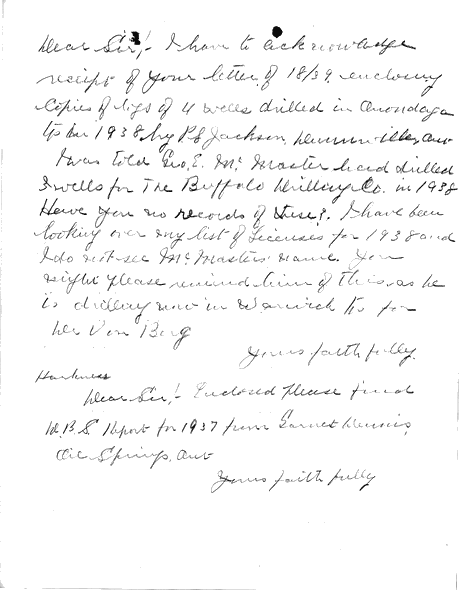 Dear Sir,- I have to acknowledge
receipt of your letter of 18/39 enclosing
Copies of logs of 4 wells drilled in Onondaga
Tp in 1938 by Jackson, Ont
I was told Geo. E. McMaster had drilled
3 wells for The Buffalo Drilling Co. in 1938
Have you no records of these? I have been
looking over my list of Licenses for 1938 and
I do not see McMasters name. You
might please remind him of this, as he
is drilling now in Warwick Tp for
Von Berg
Yours faithfully
Harkness
Dear Sir,- Enclosed please find
Report for 1937 from Garnet
Oil Springs, Ont
Yours faithfully